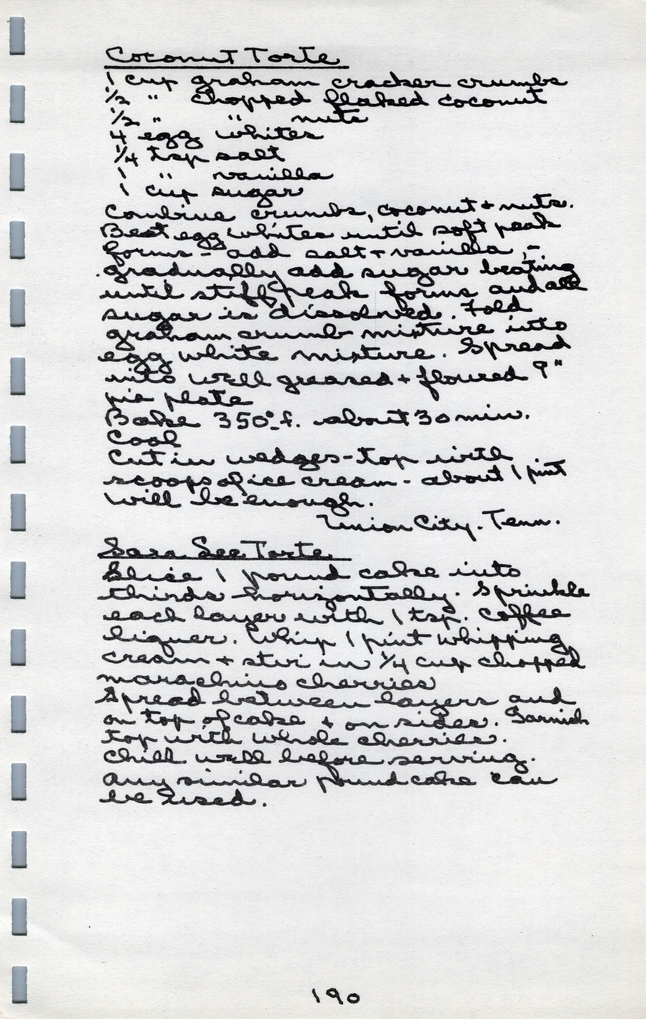 Coconut Torte
1 cup graham cracker crumbs
1/2 " chopped flaked coconut
1/2 " " nuts
4 egg whites
1/4 tsp salt
1 " vanilla
1 cup sugar
Combine crumbs, coconut + nuts.
Beat egg whites until soft peak
forms - add salt + vanilla, -
gradually add sugar beating
until stiff peak forms and all
sugar is dissolved. Fold
graham crumb mixture into
egg white mixture. Spread
into well greased + floured 9"
pie plate
Bake 350° f. about 30 min.
Cool
Cut in wedges - top with
scoops of ice cream - about 1 pint
will be enough.
Union City - Tenn.
Sara Lee Torte
Slice 1 pound cake into
thirds horizontally. Sprinkle
each layer with 1 tsp. coffee
liquer. Whip 1 pint whipping
cream + stir in 1/4 cup chopped
marachino cherries
Spread between layers and
on top of cake + on sides. Garnish
top with whole cherries.
Chill well before serving.
Any similar pound cake can
be used.
190